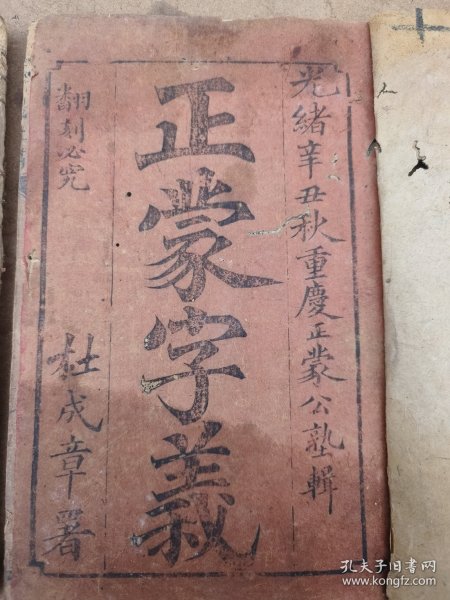 光緒辛丑秋重慶正蒙公塾輯
正蒙字義
翻刻必究
杜成章署
孔夫子旧书网
www.kongfz.com